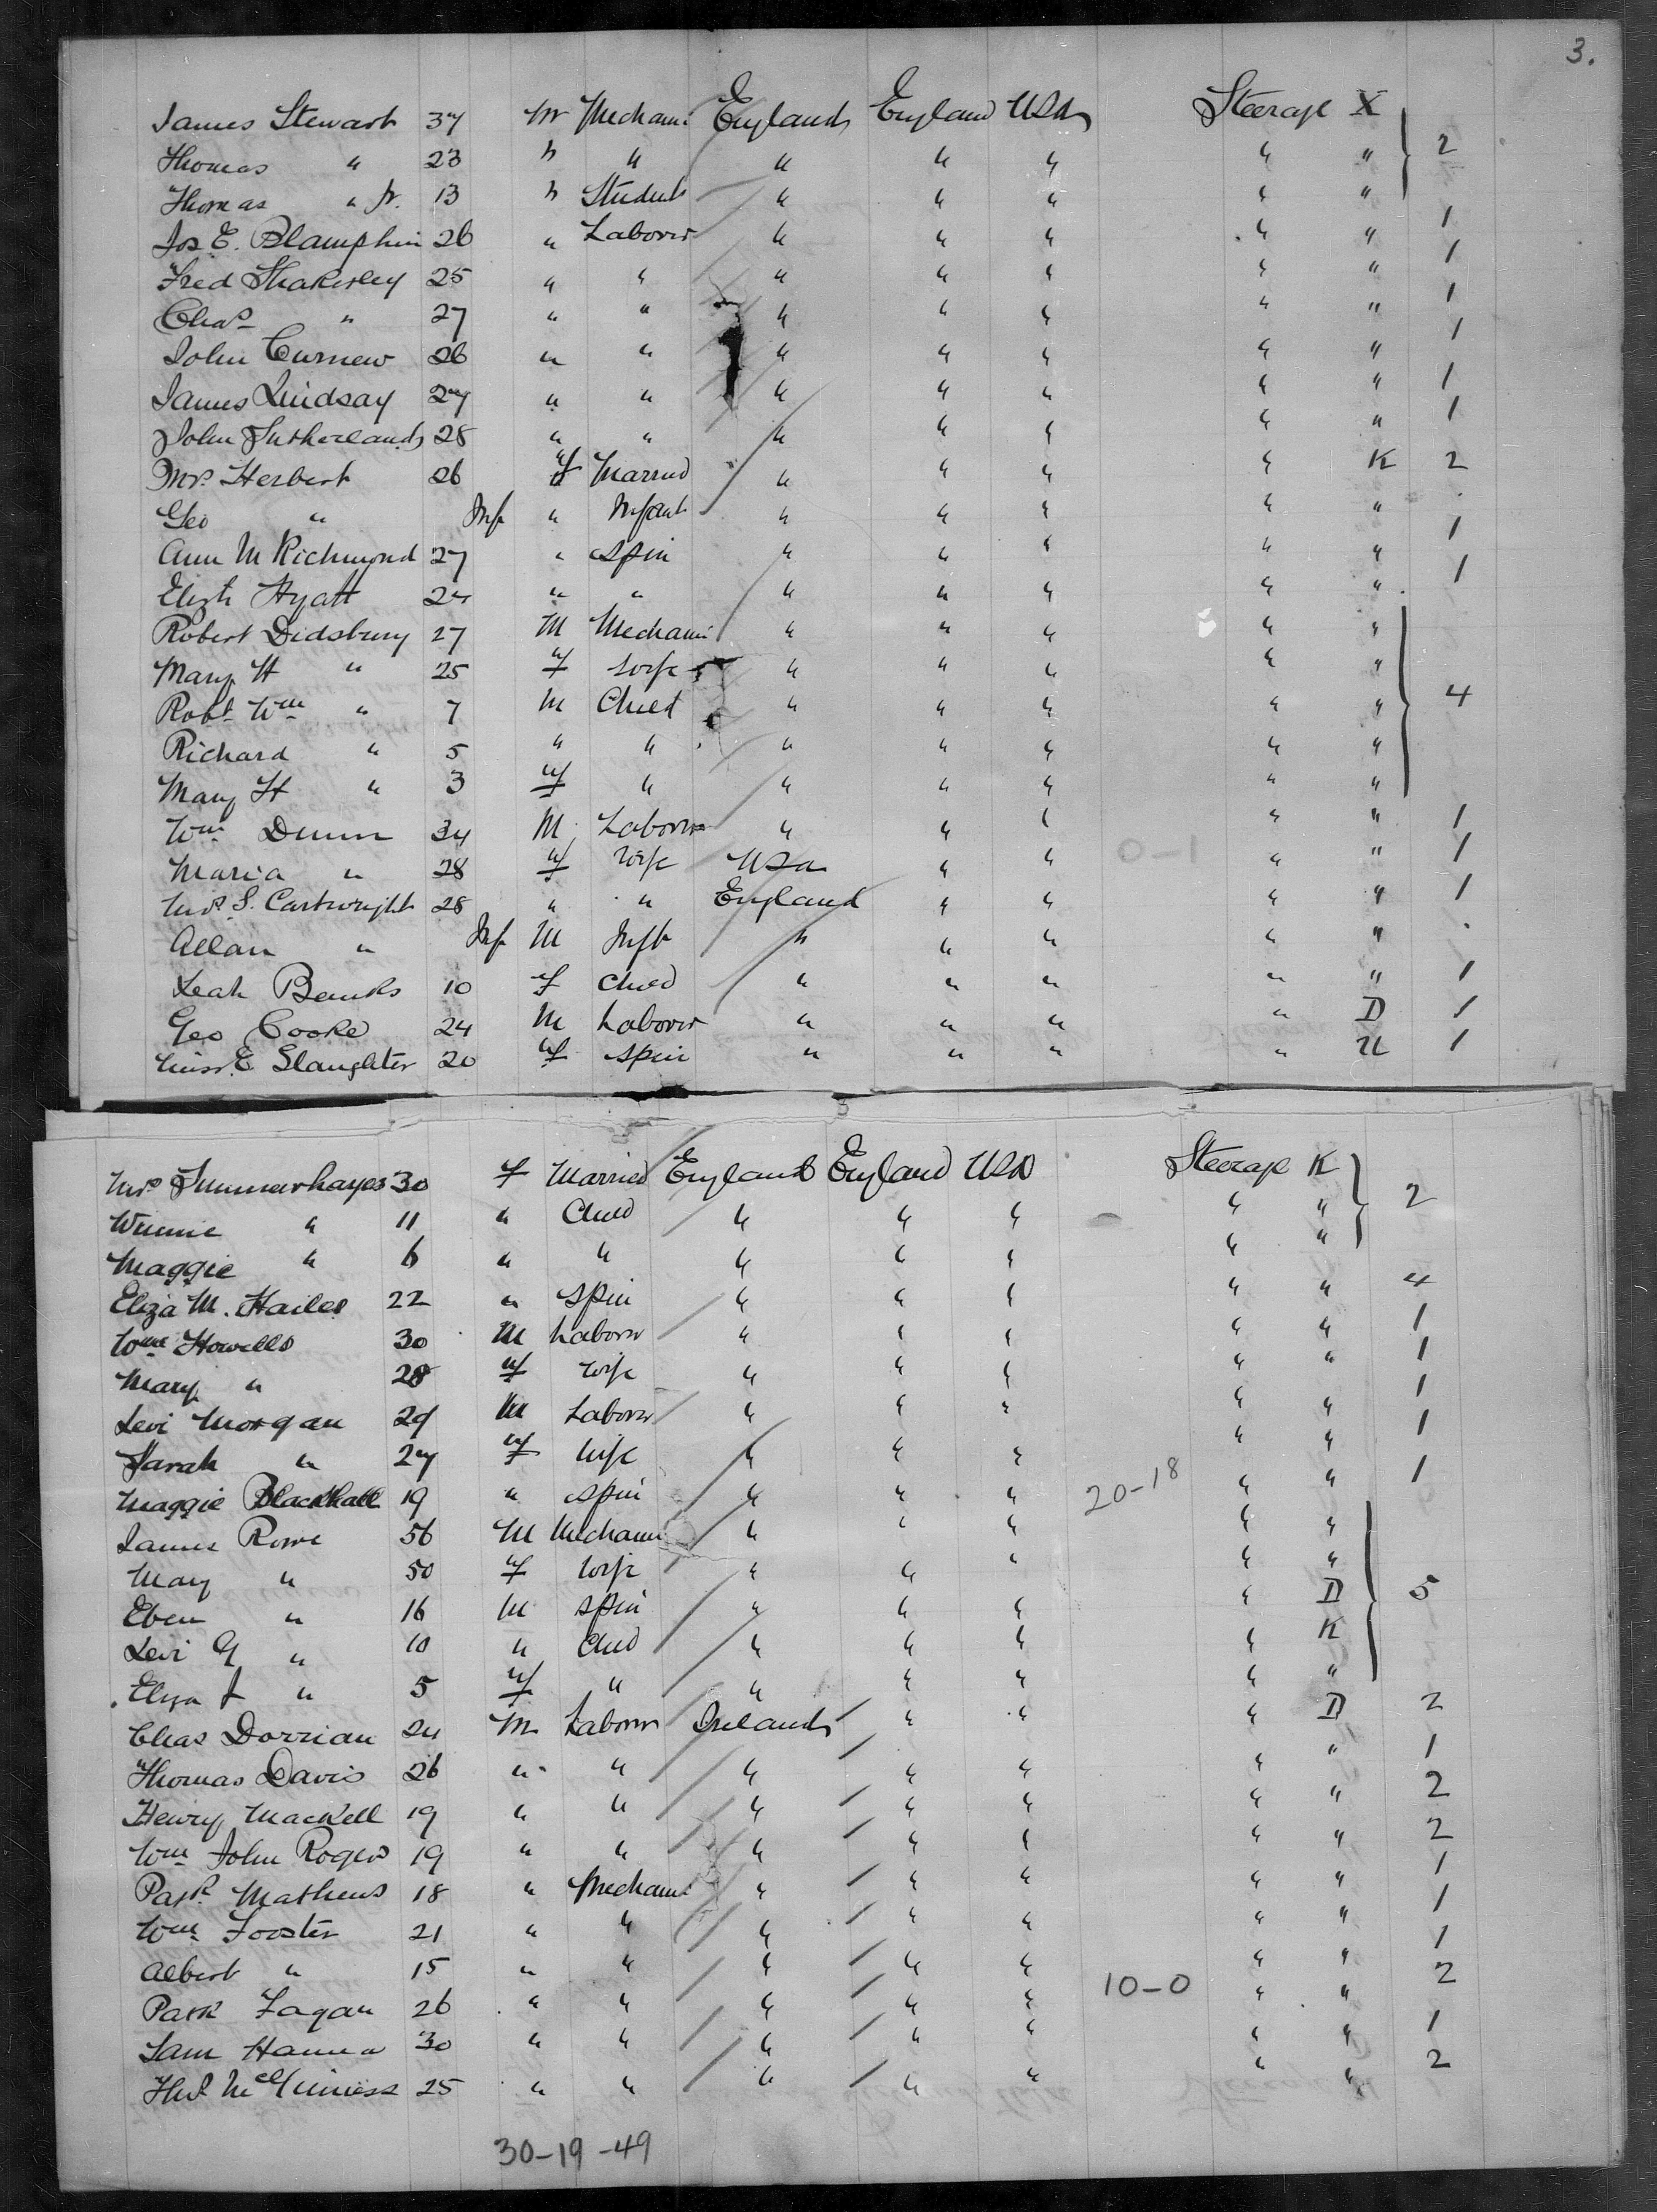 3.
James Stewart 37 m Mechanic England England USA Steerage X
Thomas " 23 " " " " " " " 2
Thomas " Jr. 13 " Student " " " " "
Jos E. Blamphin 26 " Laborer " " " " " 1
Fred Shakesley 25 " " " " " " " 1
Chas " 27 " " " " " " " 1
John Curnew 26 " " " " " " " 1
James Lindsay 27 " " " " " " " 1
John Sutherland 28 " " " " " " " 1
Mrs. Herbert 26 f Married " " " " K 2
Geo " Inf " Infant " " " " "
Ann M Richmond 27 " Spin " " " " " 1
Elizth Hyatt 24 " " " " " " " 1
Robert Didsbury 27 M Mechanic " " " " "
Mary H " 25 f Wife " " " " "
Robt Wm " 7 M Child " " " " " 4
Richard " 5 " " " " " " "
Mary H " 3 f " " " " " "
Wm Dunn 34 M Laborer " " " " " 1
Maria " 28 f Wife USA " " 0-1 " " 1
Mrs S. Cartwright 28 " " England " " " " 1
Allan " Inf M Inft " " " " "
Leah Banks 10 f Child " " " " " 1
Geo Cooke 24 M Laborer " " " " D 1
Miss E Slaughter 20 f Spin " " " " U 1
Mrs Summerhayes 30 f Married England England USA Steerage K
Winnie " 11 " Child " " " " " 2
Maggie " 6 " " " " " " "
Eliza M. Hailes 22 " Spin " " " " " 4
Wm Howells 30 M Laborer " " " " " 1
Mary " 28 f Wife " " " " " 1
Levi Morgan 29 M Laborer " " " " " 1
Sarah " 27 f Wife " " " " " 1
Maggie Blackhall 19 " Spin " " " 20-18 " " 1
James Rowe 56 M Mechanic " " " " "
Mary " 50 f Wife " " " " "
Eben " 16 M Spin " " " " D 5
Levi G " 10 " Child " " " " K
Eliza J " 5 f " " " " " "
Chas Dorrian 24 M Laborer Ireland " " " D 2
Thomas Davis 26 " " " " " " " 1
Henry Mackell 19 " " " " " " " 2
Wm John Rogers 19 " " " " " " " 2
Patk. Mathews 18 " Mechanic " " " " " 1
Wm Fooster 21 " " " " " " " 1
Albert " 15 " " " " " " " 1
Patk Fagan 26 " " " " " 10-0 " " 2
Sam Hanna 30 " " " " " " " 1
Thos McGuiness 25 " " " " " " " 2
30-19-49